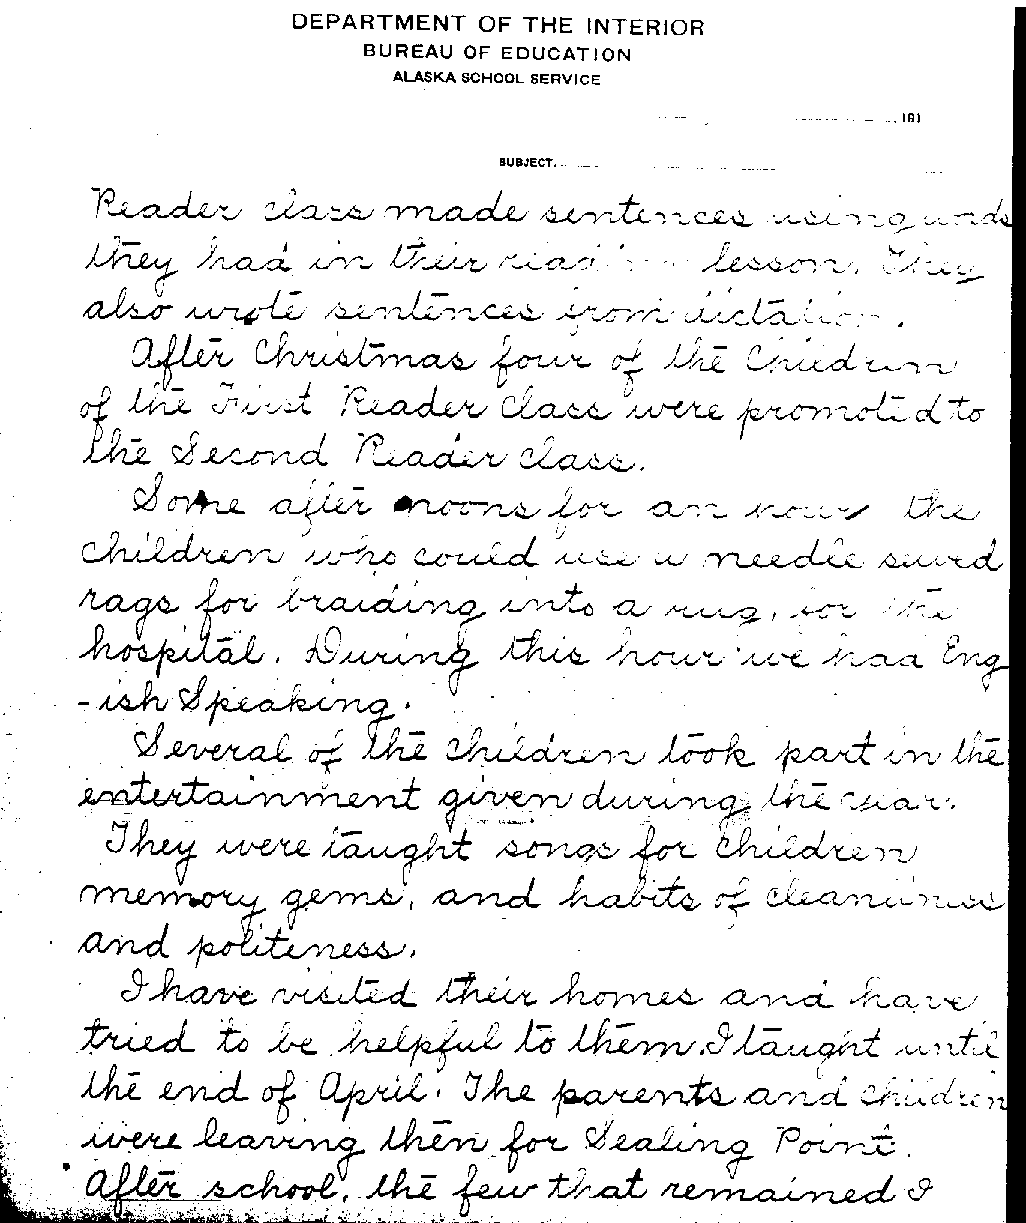 DEPARTMENT OF THE INTERIOR
BUREAU OF EDUCATION
ALASKA SCHOOL SERVICE
191
SUBJECT
Reader class made sentences using words
they had in their reading lesson. They
also wrote sentences from dictation.
After Christmas four of the Children
of the First Reader class were promoted to
the Second Reader class.
Some after noons for an hour the
children who could use a needle sewed
rags for braiding into a rug, for the
hospital. During this hour we had Eng
-ish Speaking.
Several of the children took part in the
entertainment given during the year.
They were taught songs for children
memory gems, and habits of cleanliness
and politeness.
I have visited their homes and have
tried to be helpful to them. I taught until
the end of April. The parents and children
were leaving then for Sealing Point.
After school, the few that remained I